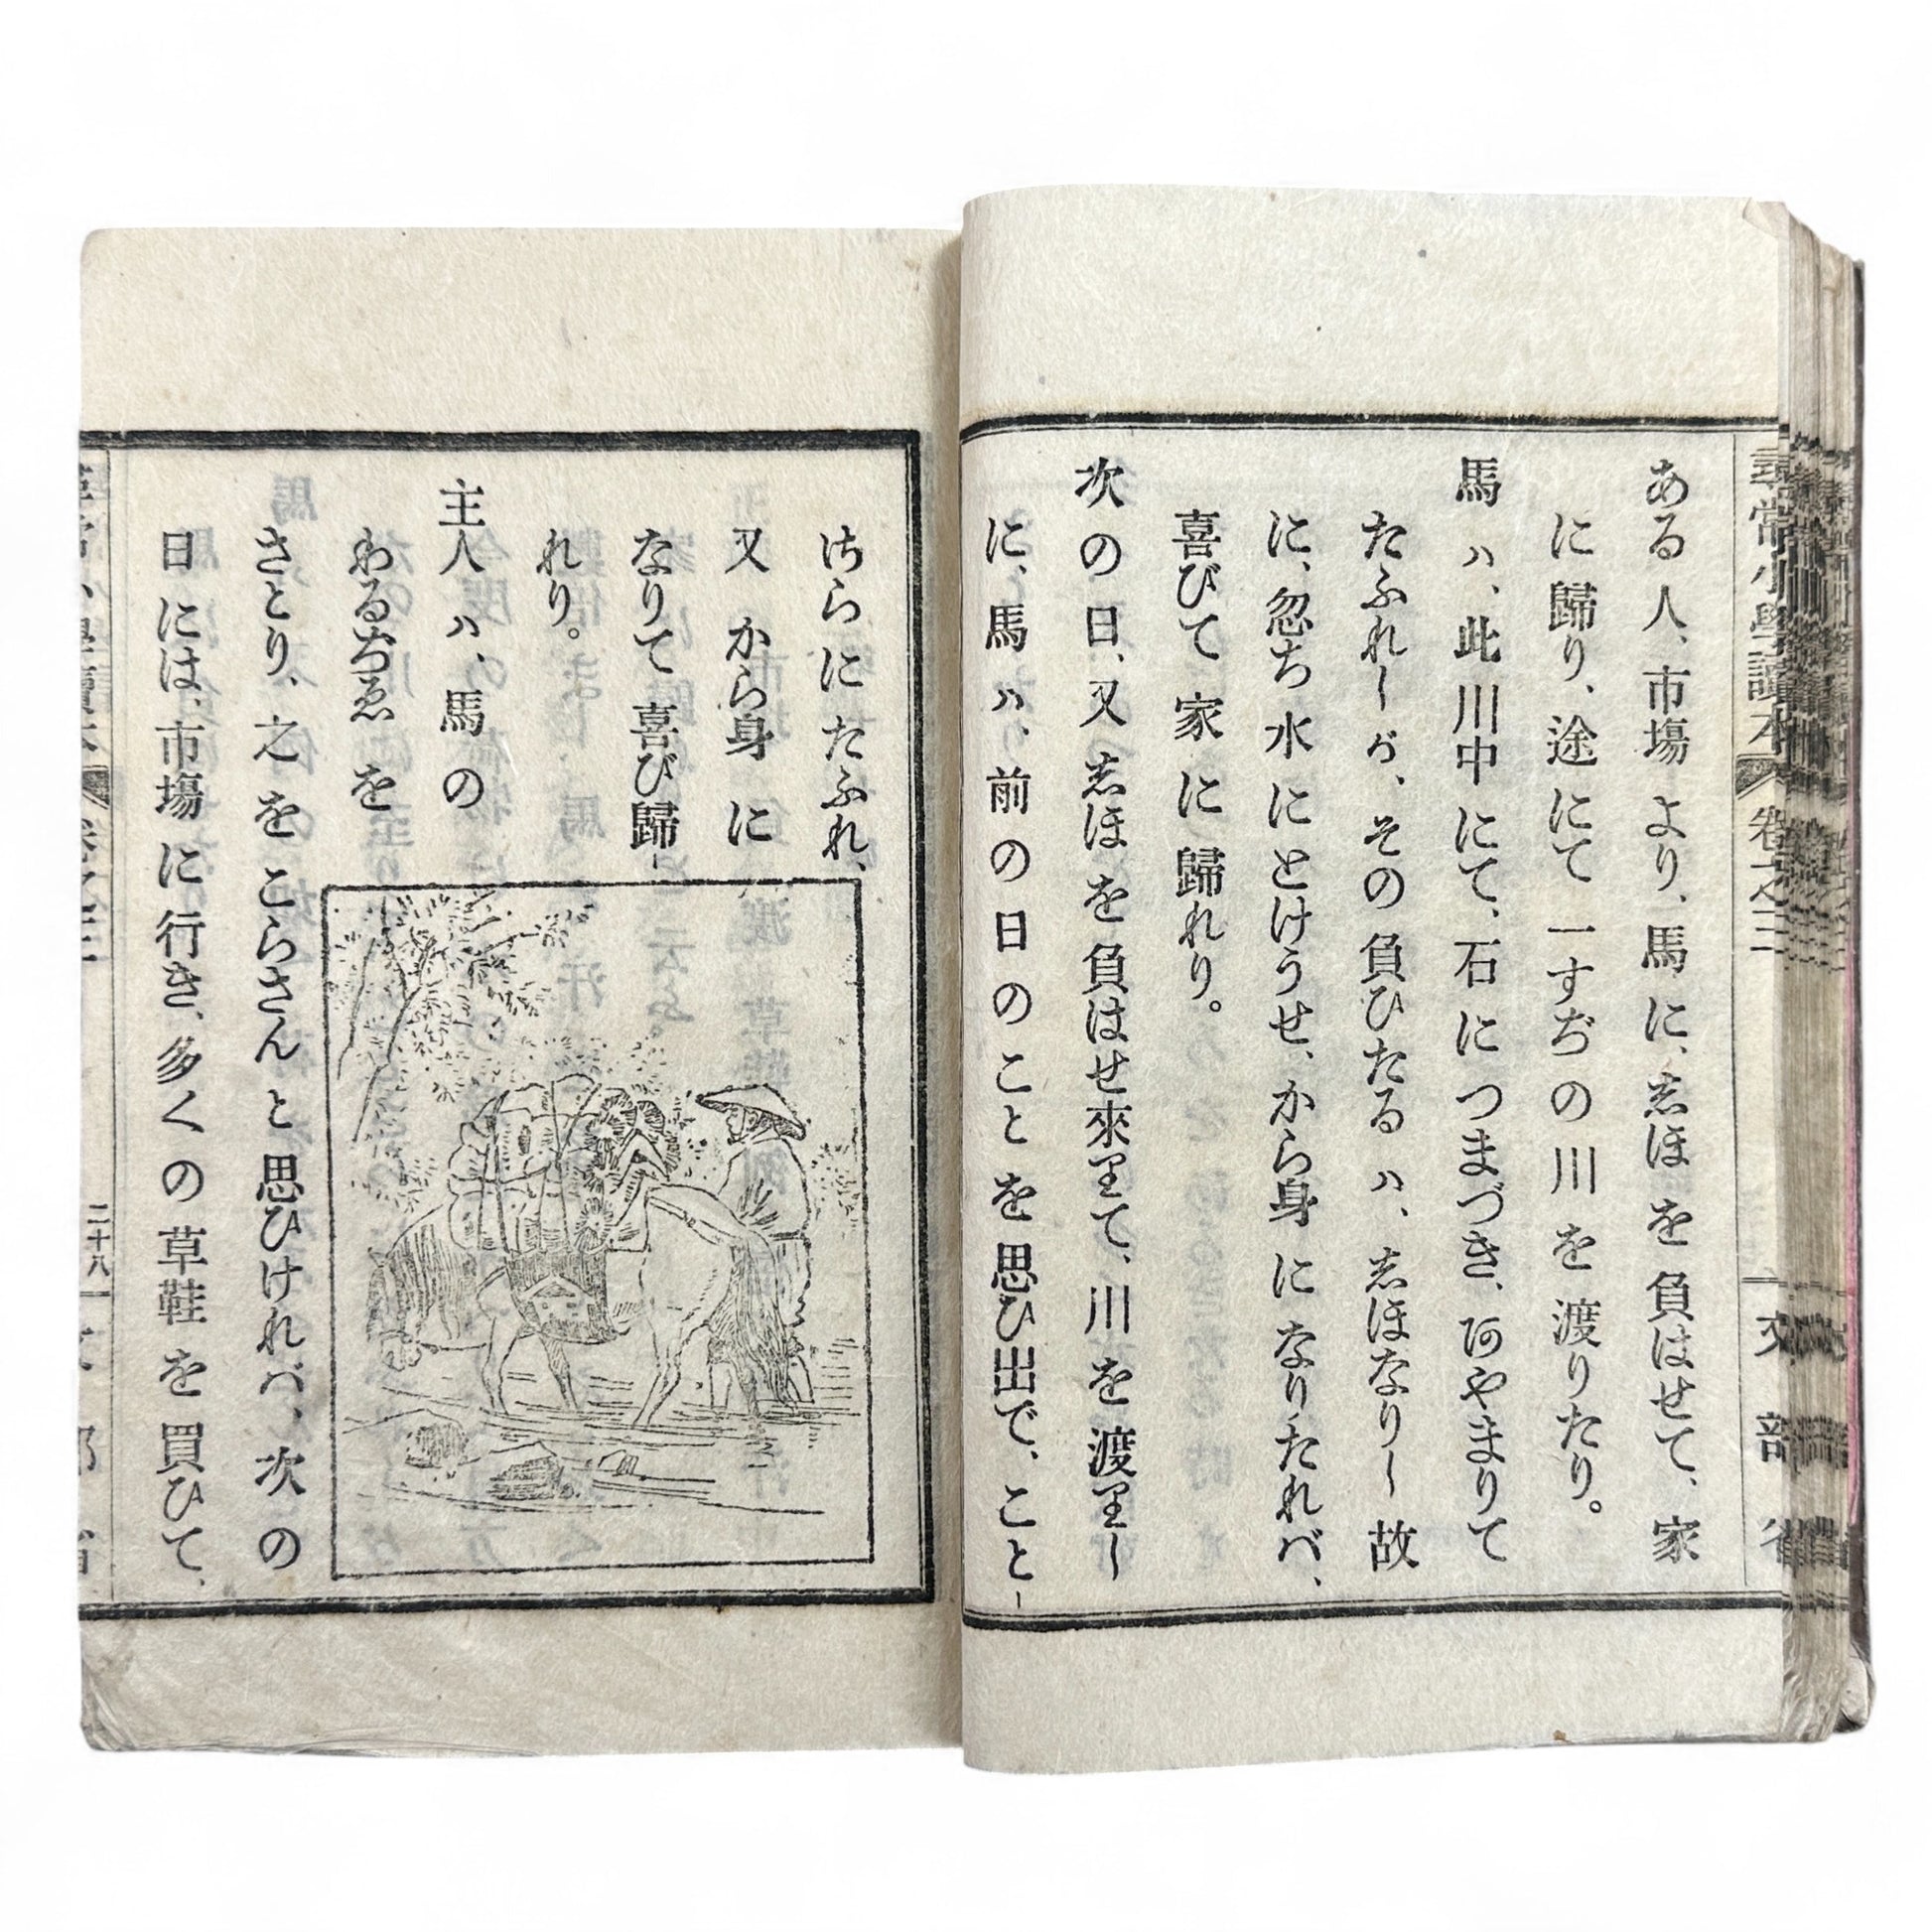 尋常小學讀本 卷之三
文部省
ある人、市塲より、馬に、志ほを負はせて、家
に歸り、途にて一すぢの川を渡りたり。
馬ハ、此川中にて、石につまづき、あやまりて
たふれしが、その負ひたるハ、志ほなりし故
に、忽ち水にとけうせ、から身になりたれバ、
喜びて家に歸れり。
次の日、又志ほを負はせ來りて、川を渡りし
に、馬ハ、前の日のことを思ひ出で、こと-
さらにたふれ、
又から身に
なりて喜び歸-
れり。
主人ハ、馬の
わるぢゑを
さとり、之をこらさんと思ひけれバ、次の
日には、市塲に行き、多くの草鞋を買ひて、
二十八